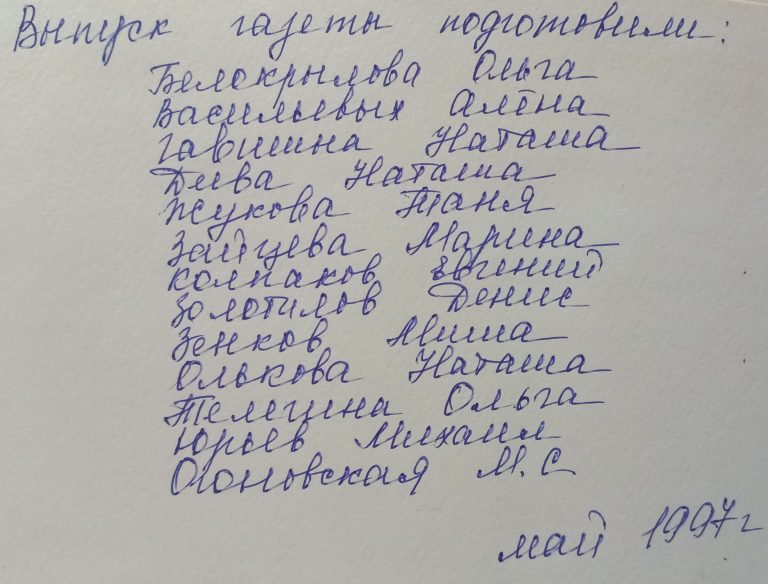 Выпуск газеты подготовили:
Белокрылова Ольга
Васильевых Алёна
Гавшина Наташа
Дива Наташа
Жукова Таня
Зайцева Марина
Колпаков Евгений
Золотилов Денис
Зенков Миша
Олькова Наташа
Телегина Ольга
Юрьев Михаил
М. С
май 1997г